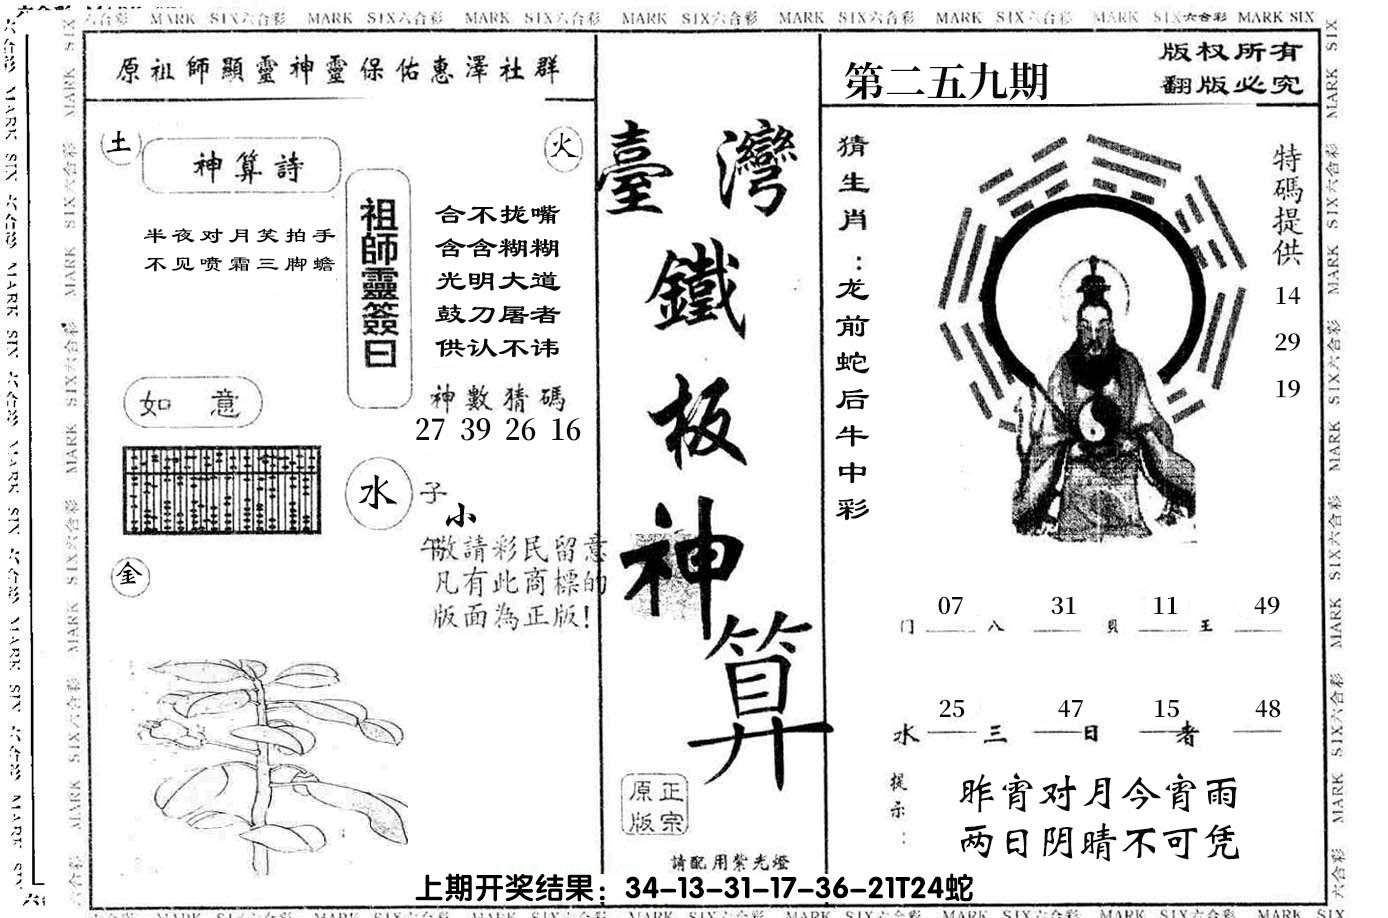 六合彩 MARK SIX六合彩 MARK SIX六合彩 MARK SIX六合彩 MARK SIX六合彩 MARK SIX六合彩 MARK SIX六合彩 MARK SIX六合彩 MARK SIX
原祖師顯靈神靈保佑惠澤社群
土
神算詩
火
半夜对月笑拍手
不见喷霜三脚蟾
祖師靈簽曰
合不拢嘴
含含糊糊
光明大道
鼓刀屠者
供认不讳
如意
神數猜碼
27 39 26 16
水
子
小
午
敬請彩民留意
凡有此商標的
版面為正版!
金
臺灣
鐵
板
神
算
原正
版宗
請配用紫光燈
第二五九期
版权所有
翻版必究
猜生肖:龙前蛇后牛中彩
特碼提供
14
29
19
07 31 11 49
门 八 貝 王
25 47 15 48
水 三 日 者
提示:
昨宵对月今宵雨
两日阴晴不可凭
上期开奖结果：34-13-31-17-36-21T24蛇